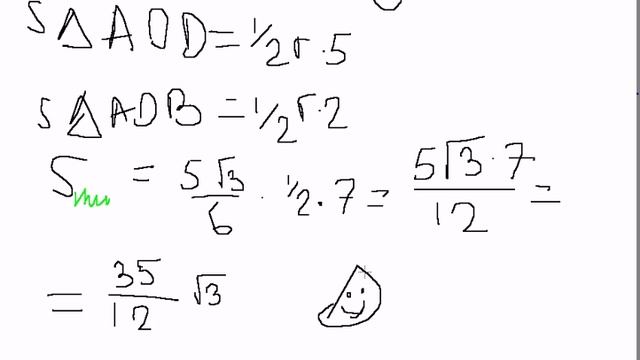 S△AOD=1/2r·5
S△ADB=1/2r·2
S = 5√3/6 · 1/2·7= 5√3·7/12 =
= 35/12 √3